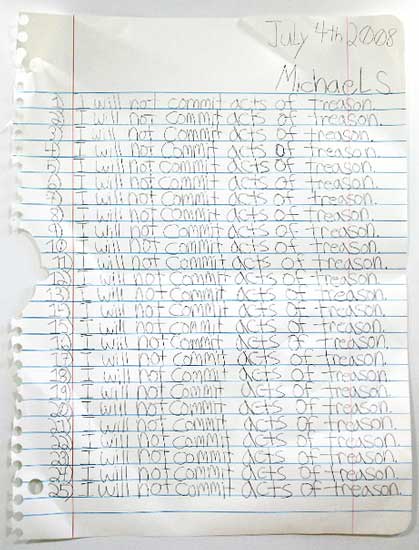 July 4th 2008
Michael S
1) I will not commit acts of treason.
2) I will not commit acts of treason.
3) I will not commit acts of treason.
4) I will not commit acts of treason.
5) I will not commit acts of treason.
6) I will not commit acts of treason.
7) I will not commit acts of treason.
8) I will not commit acts of treason.
9) I will not commit acts of treason.
10) I will not commit acts of treason.
11) I will not commit acts of treason.
12) I will not commit acts of treason.
13) I will not commit acts of treason.
14) I will not commit acts of treason.
15) I will not commit acts of treason.
16) I will not commit acts of treason.
17) I will not commit acts of treason.
18) I will not commit acts of treason.
19) I will not commit acts of treason.
20) I will not commit acts of treason.
21) I will not commit acts of treason.
22) I will not commit acts of treason.
23) I will not commit acts of treason.
24) I will not commit acts of treason.
25) I will not commit acts of treason.